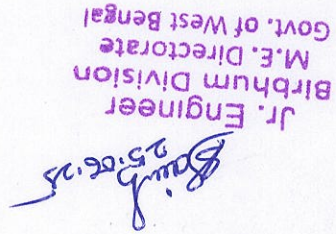 25.06.25
Jr. Engineer
Birbhum Division
M.E. Directorate
Govt. of West Bengal